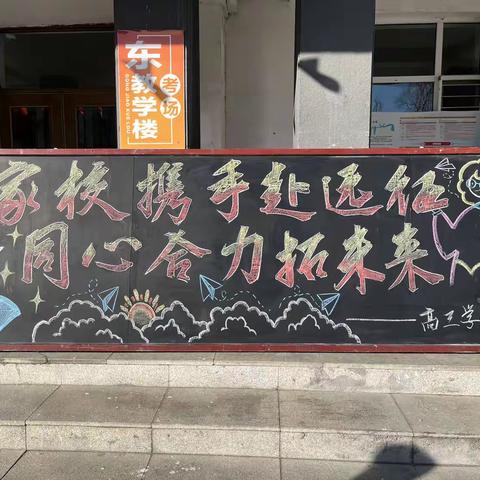 东教学楼
DONG JIAO XUE LOU
考场
家校携手赴远征
同心合力拓未来
——高三学